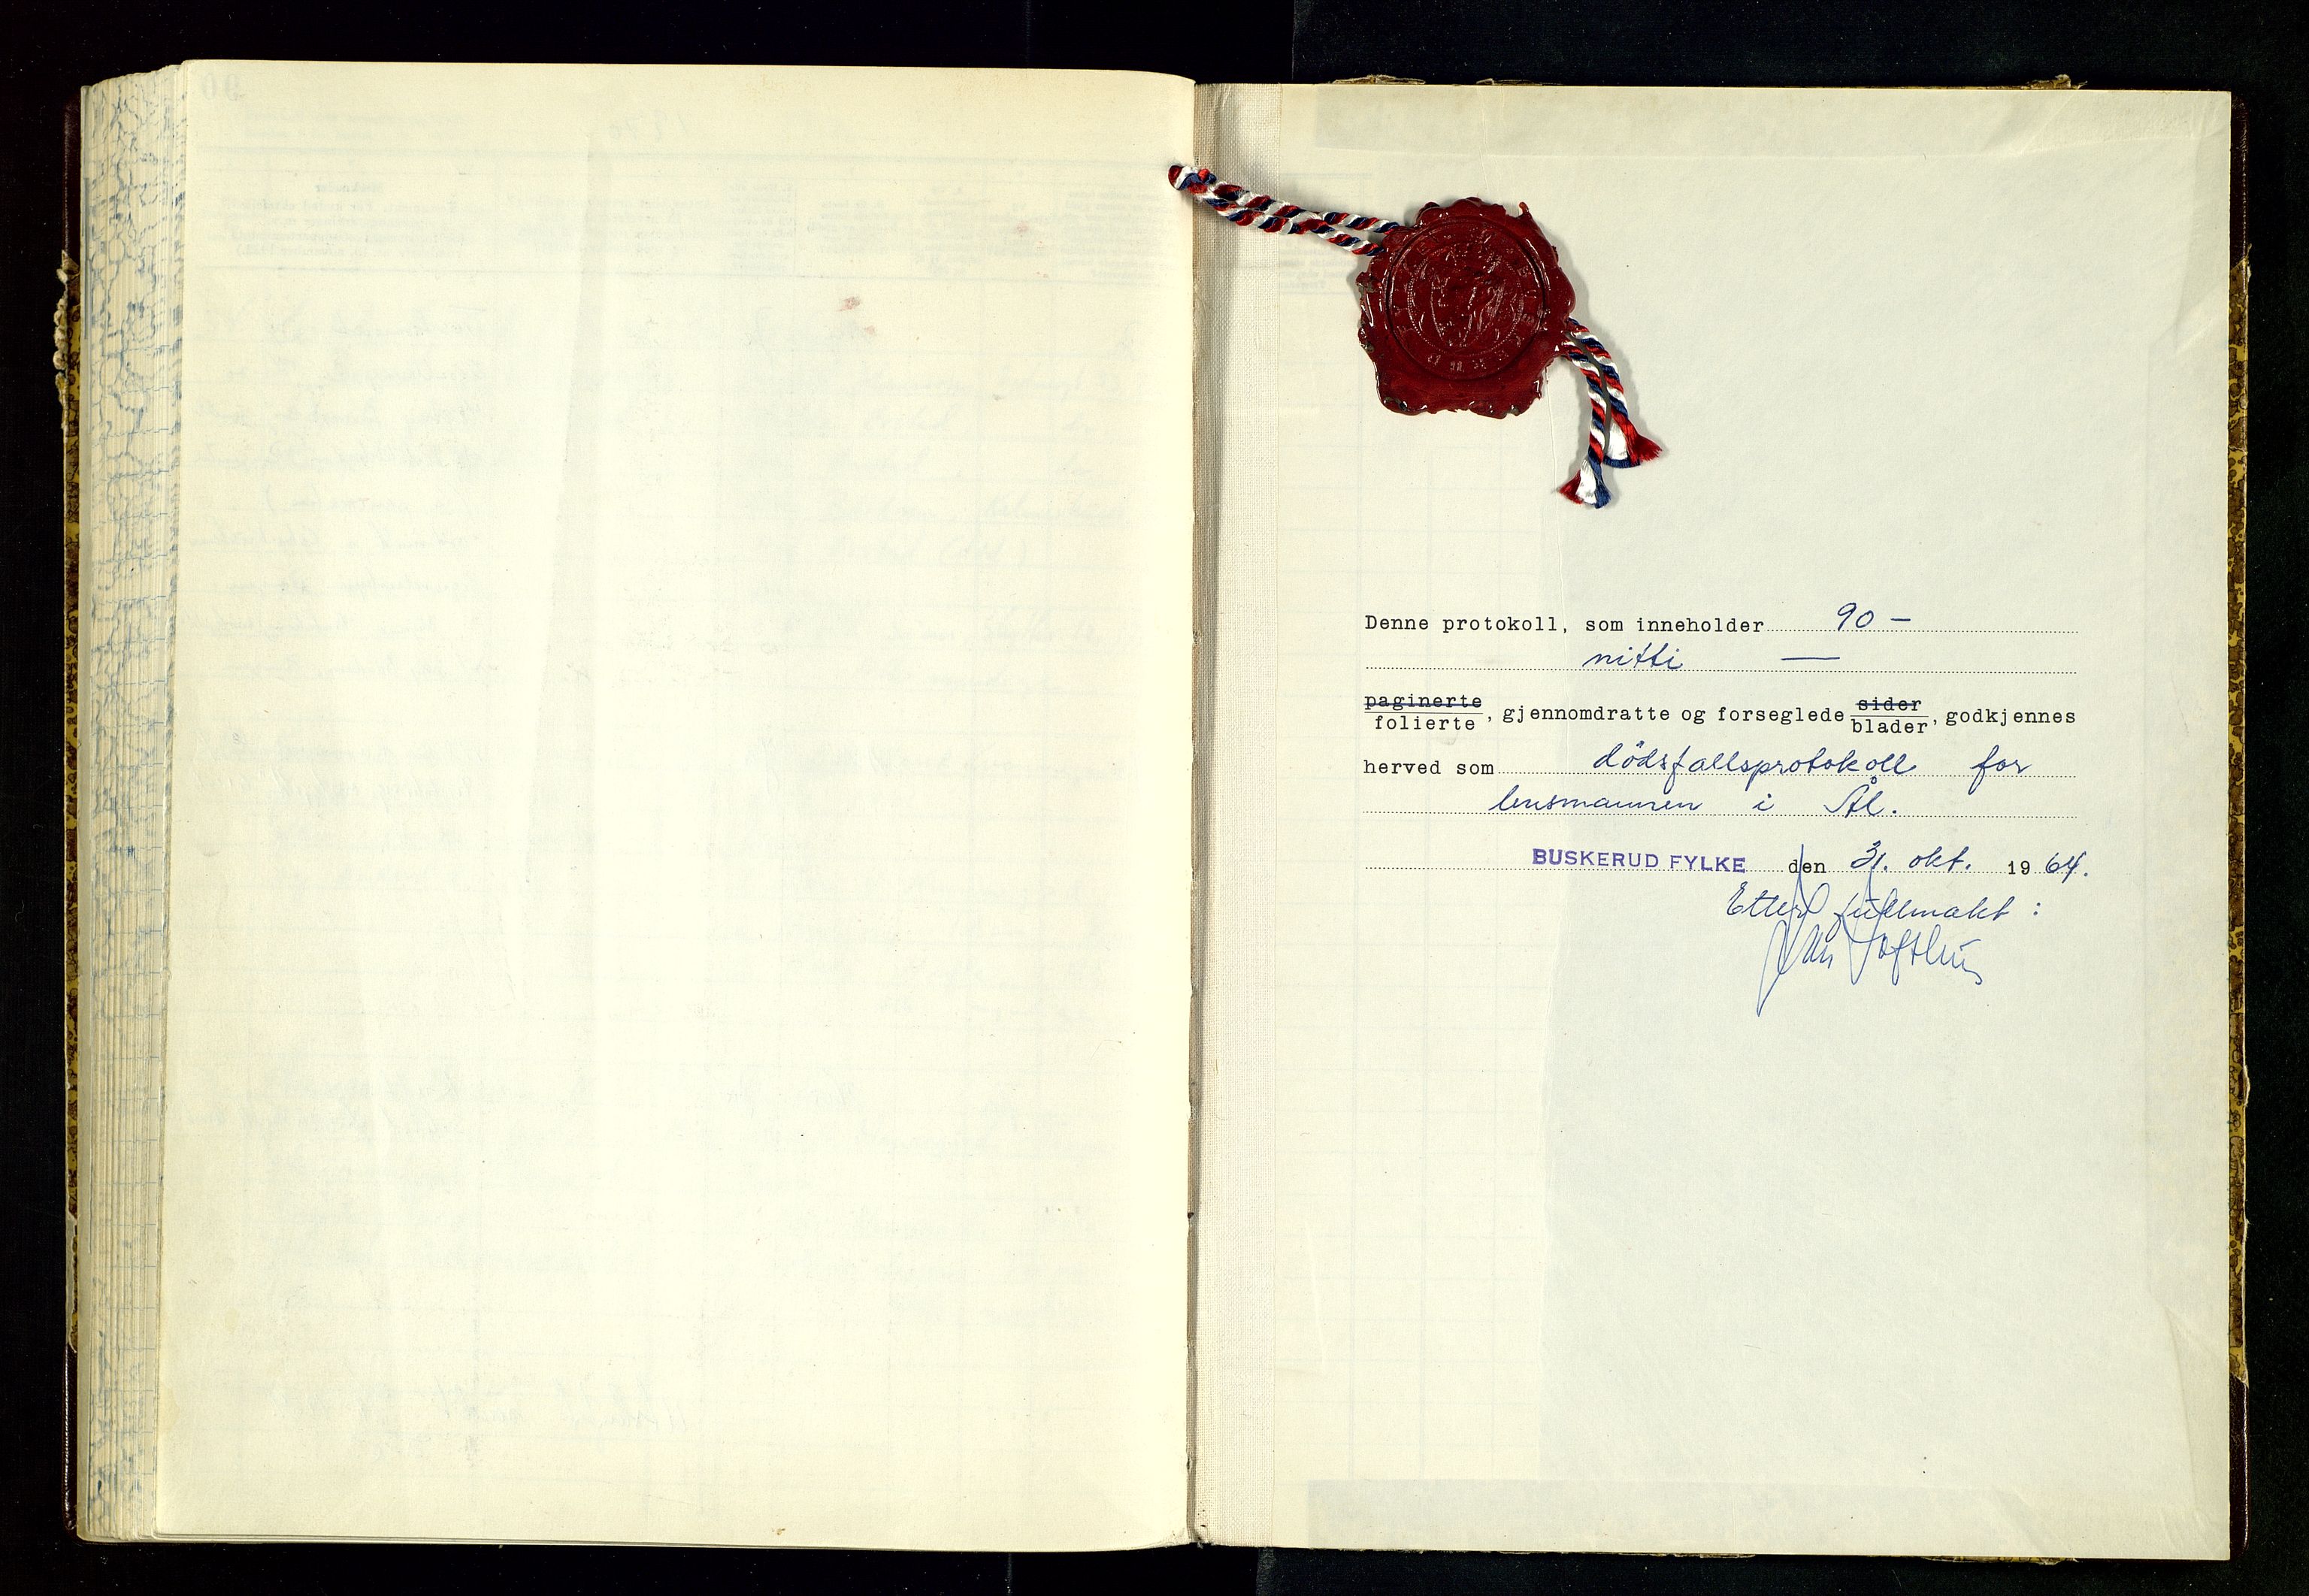 Denne protokoll, som inneholder 90 —
nitti —
paginerte
folierte, gjennomdratte og forseglede sider
blader, godkjennes
herved som dödsfallsprotokoll for
lensmannen i Ål.
BUSKERUD FYLKE den 31. okt. 1964.
Etter fullmakt :